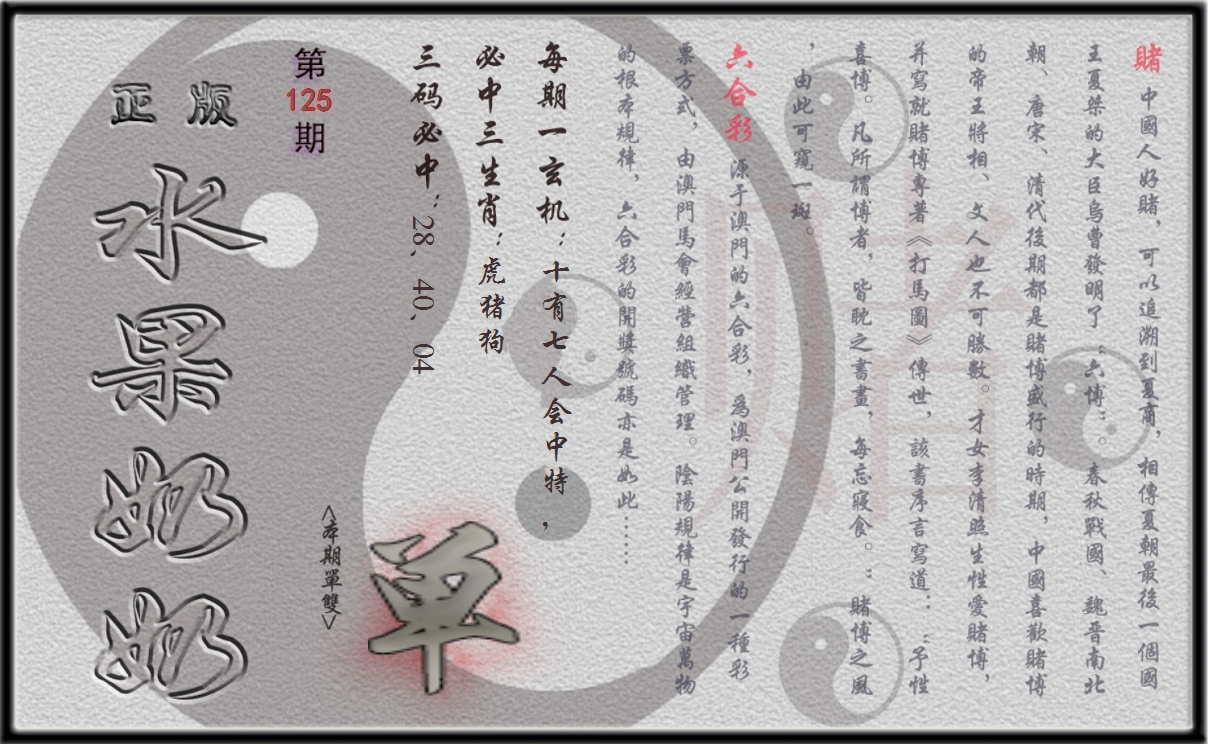 賭 中國人好賭，可以追溯到夏商，相傳夏朝最後一個國
王夏桀的大臣烏曹發明了“六博”。春秋戰國、魏晉南北
朝、唐宋、清代後期都是賭博盛行的時期，中國喜歡賭博
的帝王將相、文人也不可勝數。才女李清照生性愛賭博，
并寫就賭博專著《打馬圖》傳世，該書序言寫道：“予性
喜博。凡所謂博者，皆耽之晝，每忘寢食。”賭博之風
，由此可窺一斑。
六合彩 源于澳門的六合彩，爲澳門公開發行的一種彩
票方式，由澳門馬會經營組織管理。陰陽規律是宇宙萬物
的根本規律，六合彩的開獎號碼亦是如此……
每期一玄机：十有七人会中特，
必中三生肖：虎猪狗
三码必中：28、40、04
單
<本期單雙>
第
125
期
正版
水果奶奶
赌